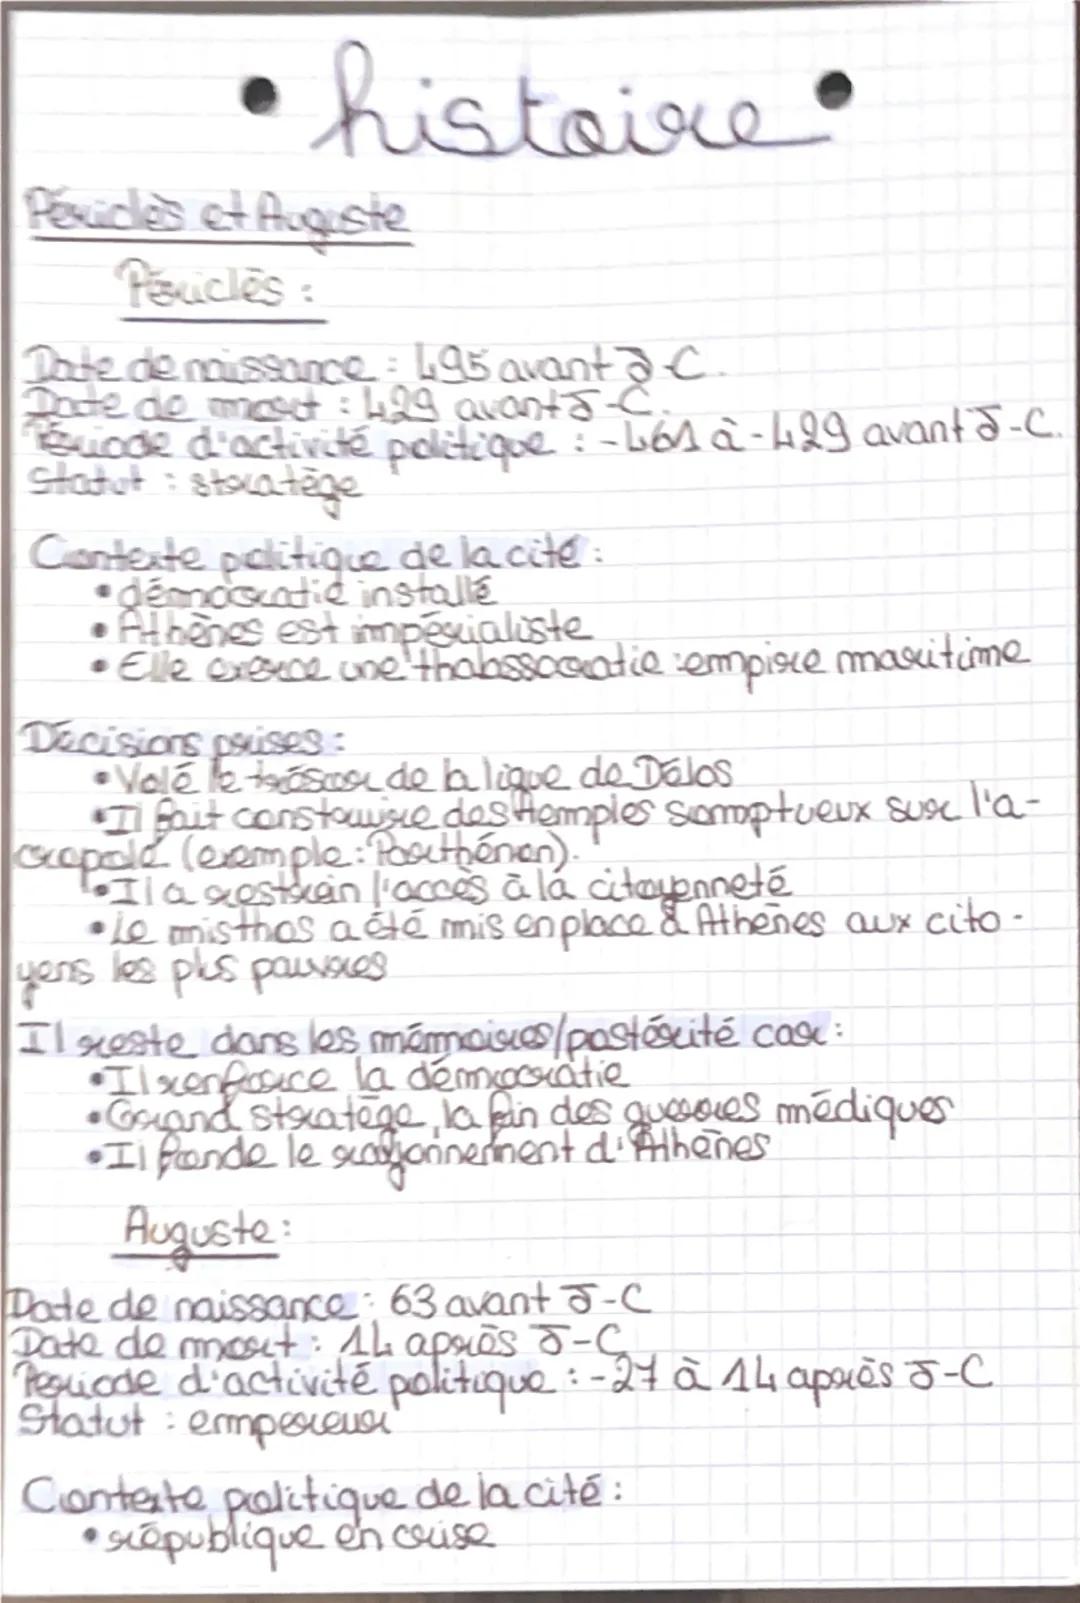 • histoire •
Périclès et Auguste
Périclès :
Date de naissance : 495 avant J-C.
Date de mort : 429 avant J-C.
Période d'activité politique : -461 à -429 avant J-C.
Statut : stratège
Contexte politique de la cité :
• démocratie installé
• Athènes est impérialiste
• Elle exerce une thabssocratie : empire maritime
Décisions prises :
• Volé le trésor de la ligue de Délos
• Il fait construire des temples somptueux sur l'a-
cropole (exemple : Parthénon).
• Il a restrein l'accès à la citoyenneté
• Le misthos a été mis en place à Athènes aux cito-
yens les plus pauvres
Il reste dans les mémoires/postérité car :
• Il renforce la démocratie
• Grand stratège, la fin des guerres médiques
• Il fonde le rayonnement d'Athènes
Auguste :
Date de naissance : 63 avant J-C
Date de mort : 14 après J-C
Période d'activité politique : -27 à 14 après J-C
Statut : empereur
Contexte politique de la cité :
• république en crise